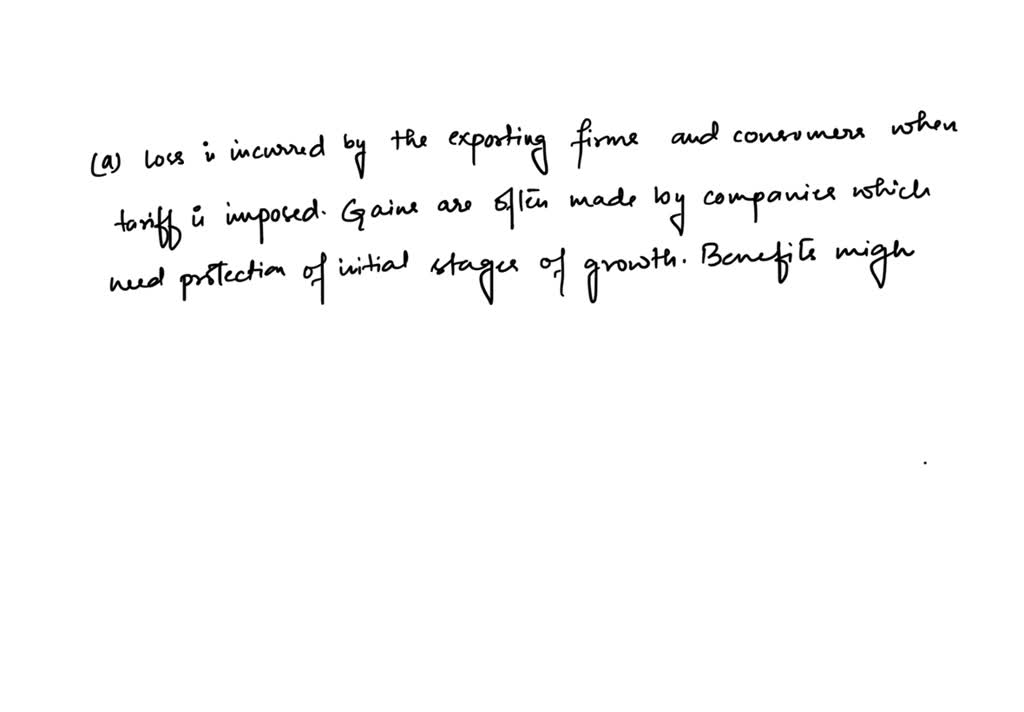 (a) Loss is incurred by the exporting firms and consumers when
tariff is imposed. Gains are often made by companies which
need protection of initial stages of growth. Benefits migh